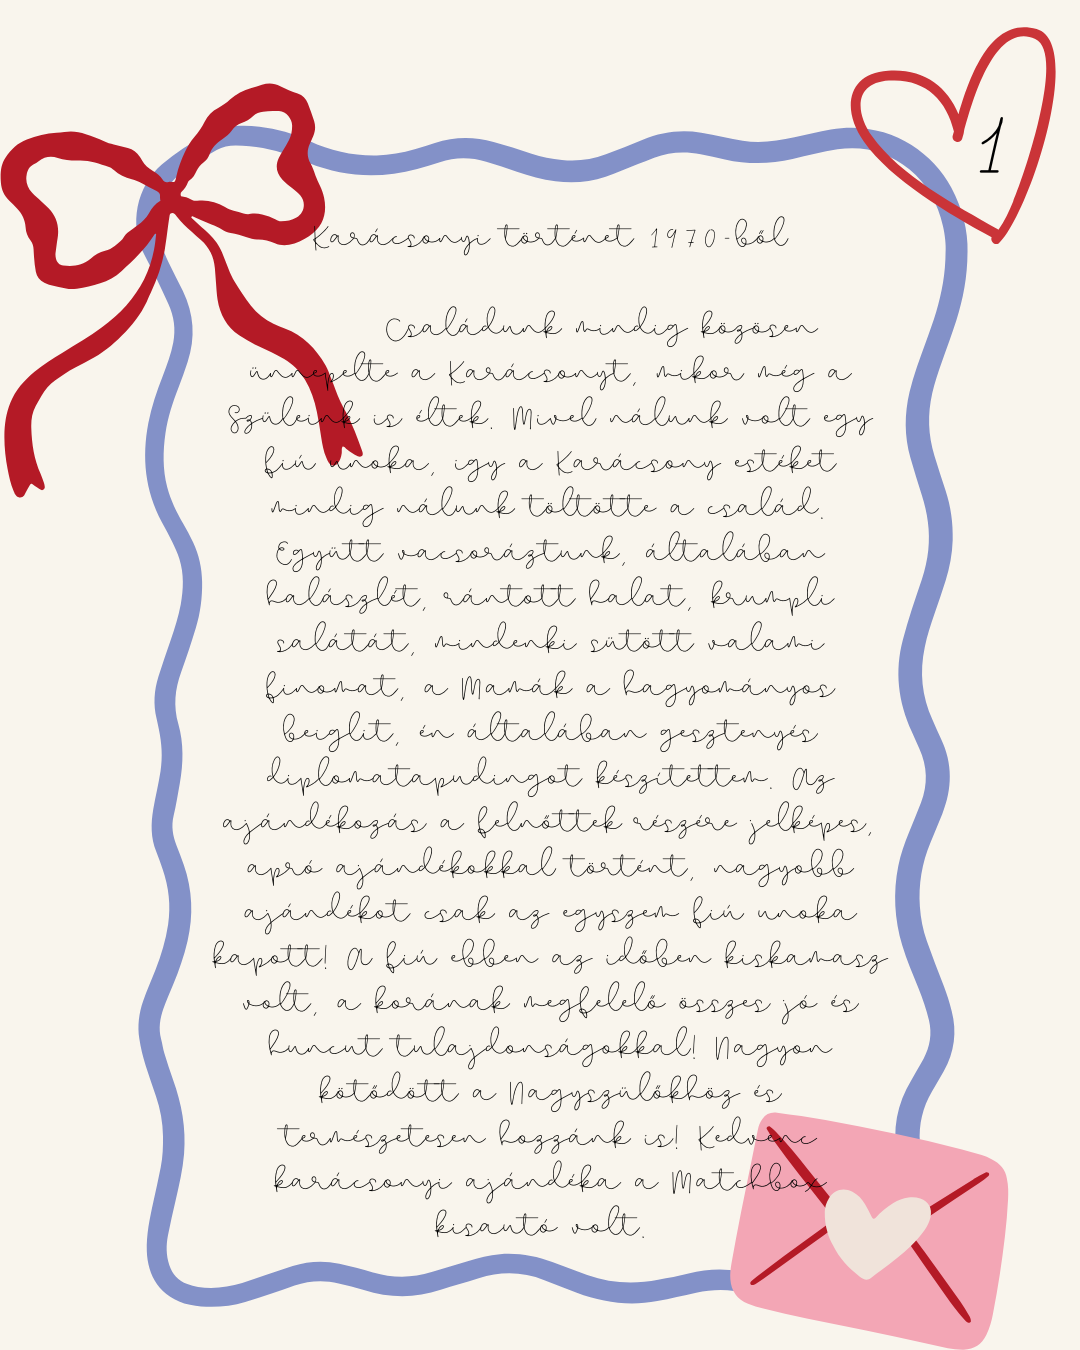 1
Karácsonyi történet 1970-ből
Családunk mindig közösen
ünnepelte a Karácsonyt, mikor még a
Szüleink is éltek. Mivel nálunk volt egy
fiú unoka, igy a Karácsony estéket
mindig nálunk töltötte a család.
Együtt vacsoráztunk, általában
halászlét, rántott halat, krumpli
salátát, mindenki sütött valami
finomat, a Mamák a hagyományos
beiglit, én általában gesztenyés
diplomatapudingot készítettem. Az
ajándékozás a felnőttek részére jelképes,
apró ajándékokkal történt, nagyobb
ajándékot csak az egyszem fiú unoka
kapott! A fiú ebben az időben kiskamasz
volt, a korának megfelelő összes jó és
huncut tulajdonságokkal! Nagyon
kötődött a Nagyszülőkhöz és
természetesen hozzánk is! Kedvenc
karácsonyi ajándéka a Matchbox
kisautó volt.